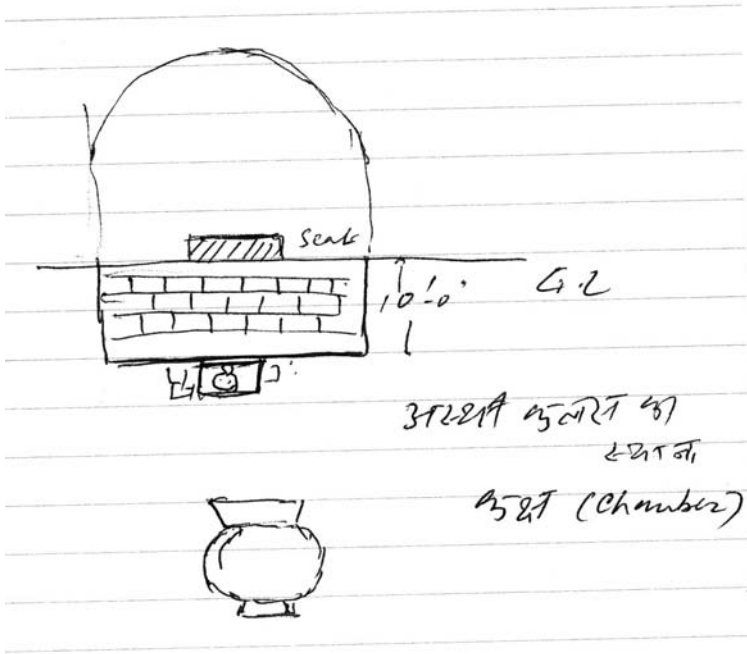 Seat
10'-0"
G.L
अस्थी कलश का
स्थान
कक्ष (Chamber)